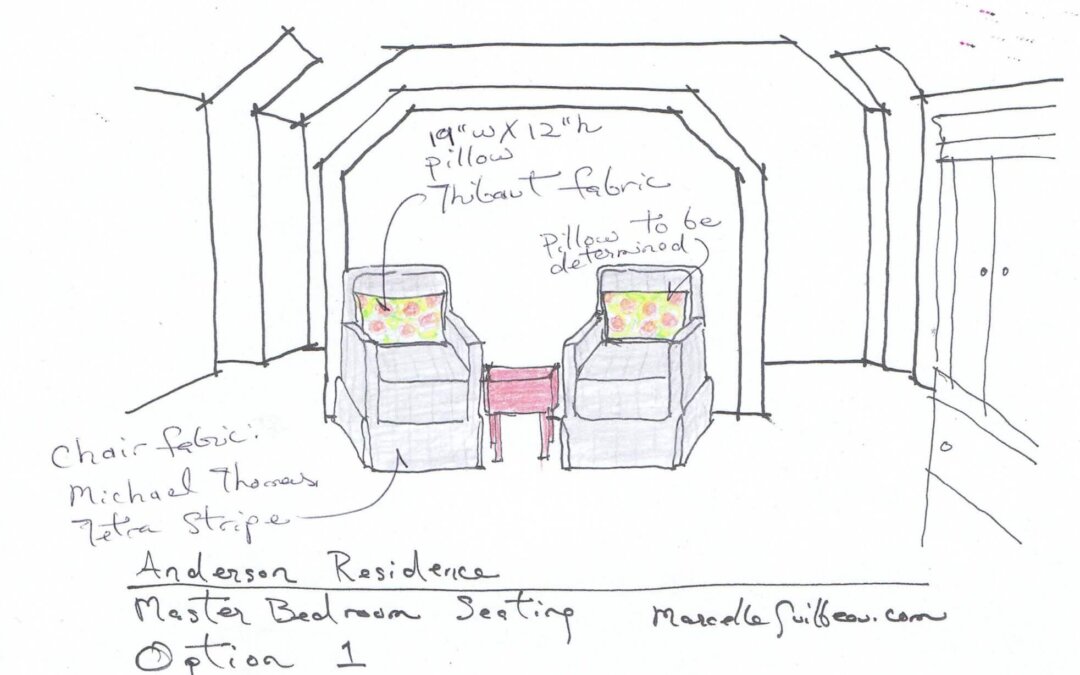 19"w X 12"h
pillow
Thibaut fabric
Pillow to be
determined
Chair fabric:
Michael Thomas
Tetra Stripe
Anderson Residence
Master Bedroom Seating
MarcelleGuilbeau.com
Option 1